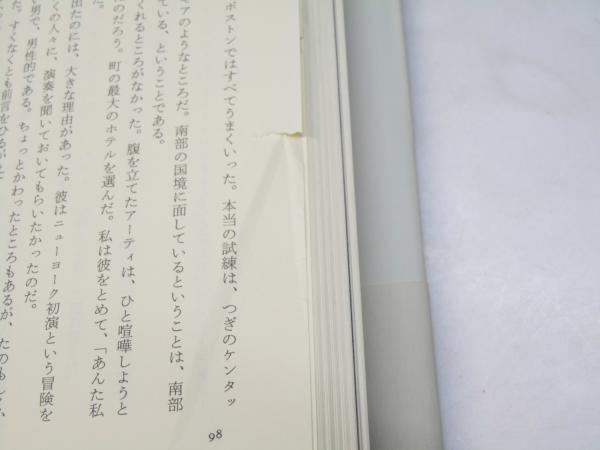 ボストンではすべてうまくいった。本当の試練は、つぎのケンタッ
モアのようなところだ。南部の国境に面しているということは、南部
ている、ということである。
くれるところがなかった。腹を立てたアーティは、ひと喧嘩しようと
のだろう。町の最大のホテルを選んだ。私は彼をとめて、「あんた私
た。
出たのには、大きな理由があった。彼はニューヨーク初演という冒険を
くの人々に、演奏を聞いておいてもらいたかったのだ。
い男で、男性的である。ちょっとかわったところもあるが、たのもしい、
た。すくなくとも前言をひるがえ
98